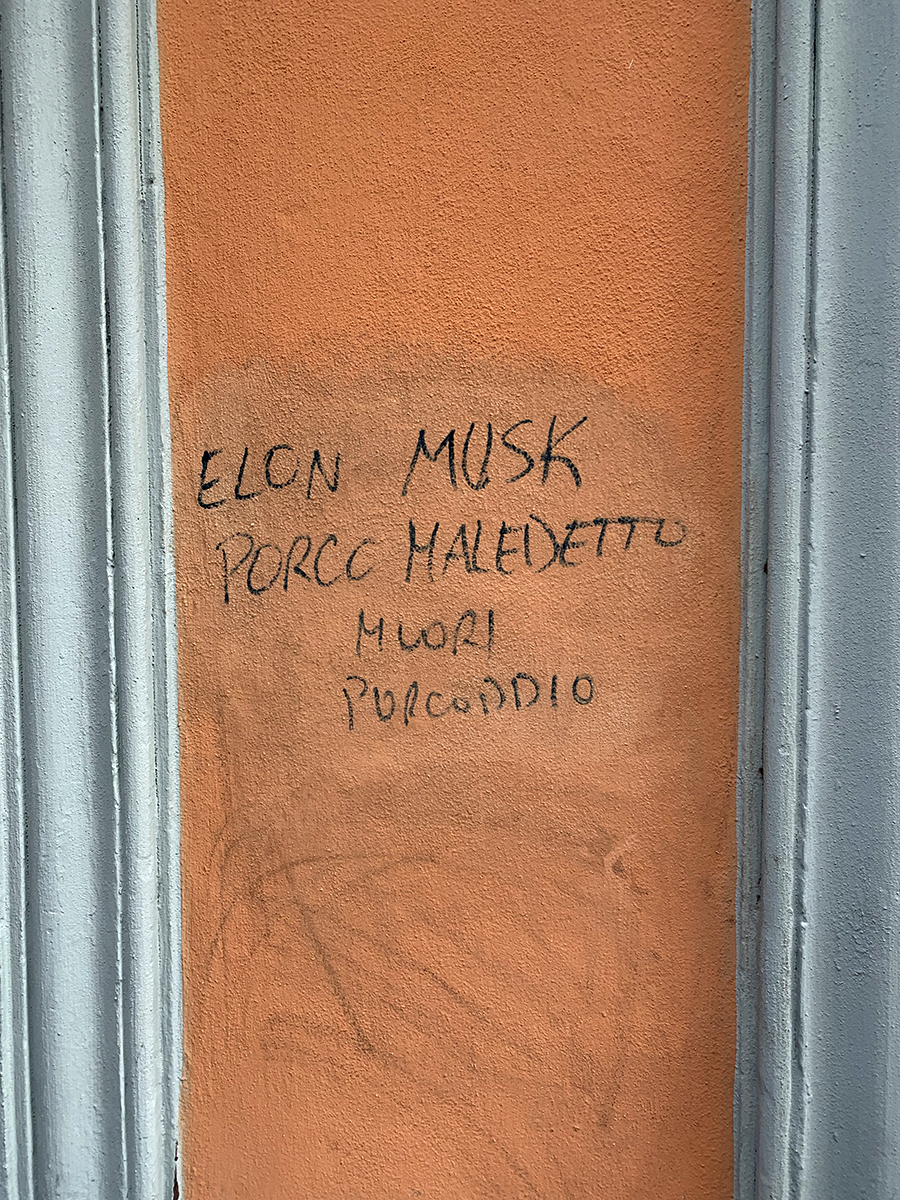 ELON MUSK
PORCO MALEDETTO
MUORI
PORCODDIO